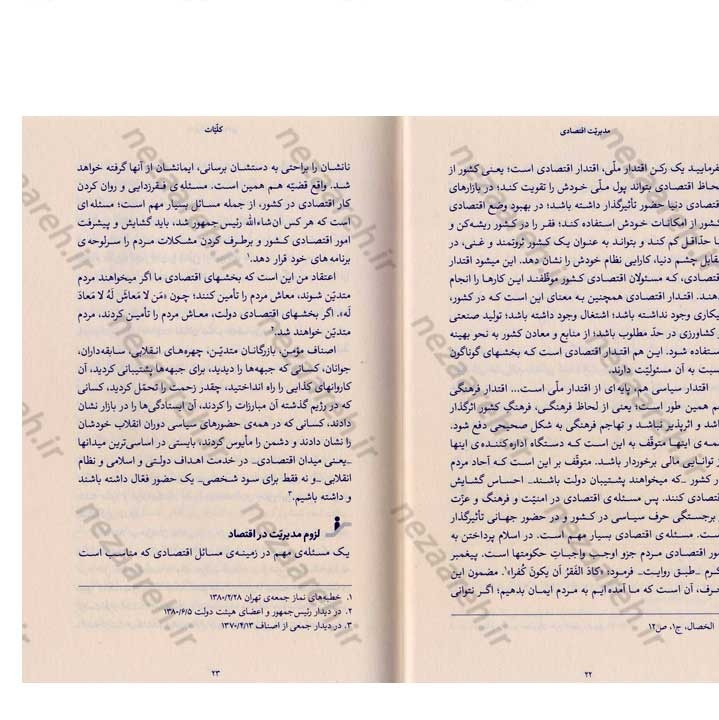 مدیریّت اقتصادی
فرمایید یک رکن اقتدار ملّی، اقتدار اقتصادی است؛ یعنی کشور از
لحاظ اقتصادی بتواند پول ملّی خودش را تقویت کند؛ در بازارهای
اقتصادی دنیا حضور تأثیرگذار داشته باشد؛ در بهبود وضع اقتصادی
کشور از امکانات خودش استفاده کند؛ فقر را در کشور ریشه‌کن و
یا حدّاقل کم کند و بتواند به عنوان یک کشور ثروتمند و غنی، در
مقابل چشم دنیا، کارایی نظام خودش را نشان دهد. این میشود اقتدار
اقتصادی، که مسئولان اقتصادی کشور موظّفند این کارها را انجام
دهند. اقتدار اقتصادی همچنین به معنای این است که در کشور،
بیکاری وجود نداشته باشد؛ اشتغال وجود داشته باشد؛ تولید صنعتی
و کشاورزی در حدّ مطلوب باشد؛ از منابع و معادن کشور به نحو بهینه
استفاده شود. این هم اقتدار اقتصادی است که بخشهای گوناگون
نسبت به آن مسئولیّت دارند.
اقتدار سیاسی هم، پایه‌ای از اقتدار ملّی است... اقتدار فرهنگی
هم همین طور است؛ یعنی از لحاظ فرهنگی، فرهنگِ کشور اثرگذار
باشد و اثرپذیر نباشد و تهاجم فرهنگی به شکل صحیحی دفع شود.
همه‌ی اینها متوقّف به این است که دستگاه اداره‌کننده‌ی اینها
از توانایی مالی برخوردار باشد. متوقّف بر این است که آحاد مردم
در کشور _که میخواهند پشتیبان دولت باشند_ احساس گشایش
اقتصادی کنند. پس مسئله‌ی اقتصادی در امنیّت و فرهنگ و عزّت
و برجستگی حرف سیاسی در کشور و در حضور جهانی تأثیرگذار
است. مسئله‌ی اقتصادی بسیار مهم است. در اسلام پرداختن به
امور اقتصادی مردم جزو اوجب واجبات حکومتها است. پیغمبر
اکرم _طبق روایت_ فرمود: «کادَ الفَقرُ اَن یَکونَ کُفراً»¹. مضمون این
حرف، آن است که ما آمده‌ایم به مردم ایمان بدهیم؛ اگر نتوانی
الخصال، ج۱، ص۱۲
۲۲
کلیّات
نانشان را براحتی به دستشان برسانی، ایمانشان از آنها گرفته خواهد
شد. واقع قضیّه هم همین است. مسئله‌ی فقرزدایی و روان کردن
کار اقتصادی در کشور، از جمله مسائل بسیار مهم است؛ مسئله‌ای
است که هر کس ان‌شاءالله رئیس‌جمهور شد، باید گشایش و پیشرفت
امور اقتصادی کشور و برطرف کردن مشکلات مردم را سرلوحه‌ی
برنامه‌های خود قرار دهد.¹
اعتقاد من این است که بخشهای اقتصادی ما اگر میخواهند مردم
متدیّن شوند، معاش مردم را تأمین کنند؛ چون «مَن لا مَعاشَ لَهُ لا مَعادَ
لَه». اگر بخشهای اقتصادی دولت، معاش مردم را تأمین کردند، مردم
متدیّن خواهند شد.²
اصناف مؤمن، بازرگانان متدیّن، چهره‌های انقلابی، سابقه‌داران،
جوانان، کسانی که جبهه‌ها را دیدید، برای جبهه‌ها پشتیبانی کردید، آن
کاروانهای کذایی را راه انداختید، چقدر زحمت را تحمّل کردید، کسانی
که در رژیم گذشته آن مبارزات را کردند، آن ایستادگی‌ها را در بازار نشان
دادند، کسانی که در همه‌ی حضورهای سیاسی دوران انقلاب خودشان
را نشان دادند و دشمن را مأیوس کردند، بایستی در اساسی‌ترین میدانها
_یعنی میدان اقتصادی_ در خدمت اهداف دولتی و اسلامی و نظام
انقلابی _و نه فقط برای سود شخصی_ یک حضور فعّال داشته باشند
و داشته باشیم.³
لزوم مدیریّت در اقتصاد
یک مسئله‌ی مهم در زمینه‌ی مسائل اقتصادی که مناسب است
۱. خطبه‌های نماز جمعه‌ی تهران ۱۳۸۰/۲/۲۸
۲. در دیدار رئیس‌جمهور و اعضای هیئت دولت ۱۳۸۰/۶/۵
۳. در دیدار جمعی از اصناف ۱۳۷۰/۴/۱۳
۲۳
nezaareh.ir